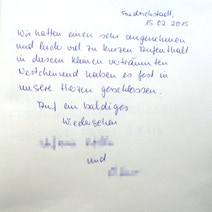 Friedrichstadt,
15.02.2015
Wir hatten einen sehr angenehmen
und leider viel zu kurzen Aufenthalt
in diesem kleinen verträumten
Nestchen und haben es fest in
unsere Herzen geschlossen.
Auf ein baldiges
Wiedersehen
und